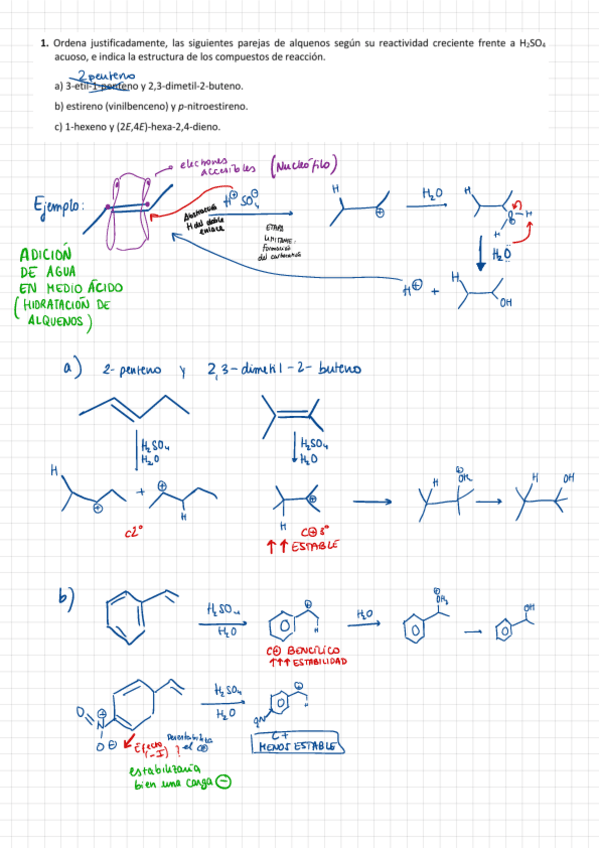 1. Ordena justificadamente, las siguientes parejas de alquenos según su reactividad creciente frente a H₂SO₄
acuoso, e indica la estructura de los compuestos de reacción.
2 penteno
a) 3-etil-1-penteno y 2,3-dimetil-2-buteno.
b) estireno (vinilbenceno) y p-nitroestireno.
c) 1-hexeno y (2E,4E)-hexa-2,4-dieno.
electrones
ACCESIBLES (Nucleófilo)
Ejemplo:
H⊕ SO₄⊖
H
⊕
H₂O
H
H
H
H del doble
enlace
ETAPA
LIMITANTE:
Formación
del carbocatión
H₂O
ADICIÓN
DE AGUA
EN MEDIO ÁCIDO
(HIDRATACIÓN DE
ALQUENOS)
H⊕ +
H
OH
a) 2-penteno y 2,3-dimetil-2-buteno
H₂SO₄
H₂O
H₂SO₄
H₂O
H
⊕
+
⊕
H
H
⊕
H
⊕
H
OH
c2º
C⊕ 3º
↑↑ ESTABLE
b)
H₂SO₄
H₂O
⊕
H
H₂O
⊕
OH₂
OH
C⊕ BENCÍLICO
↑↑↑ ESTABILIDAD
H₂SO₄
H₂O
⊕
O
N
⊕
O⊖
Efecto
(-I) ?
el C⊕
C+
MENOS ESTABLE
estabilizaría
bien una carga ⊖